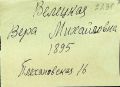 Велецкая
Вера Михайловна
1895
Плехановская 16